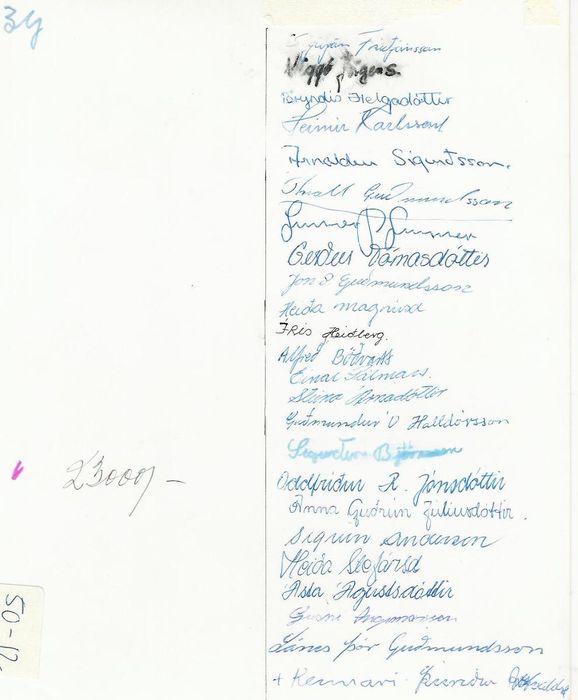 34
Friðfinnsson
Viggó Jörgens.
Bryndis Helgadóttir
Heimir Karlsson
Arnaldur Sigurðsson.
Guðmundsson
Gunnar P Gunnar
Gerður Tómasdóttir
Jón Guðmundsson
Heiða Magnúsd
Íris Heidberg.
Alfreð Böðvarss
Einar Sálmars.
Steina Árnadóttir
Guðmundur Ó Halldórsson
Sigurður Björnsson
Oddfríður R. Jónsdóttir
2300 -
Anna Guðrún Júlíusdóttir.
Sigrún Anderson
Heiða
Ásta Ágústsdóttir
Þór Guðmundsson
+ Kennari Þuríður
50-12